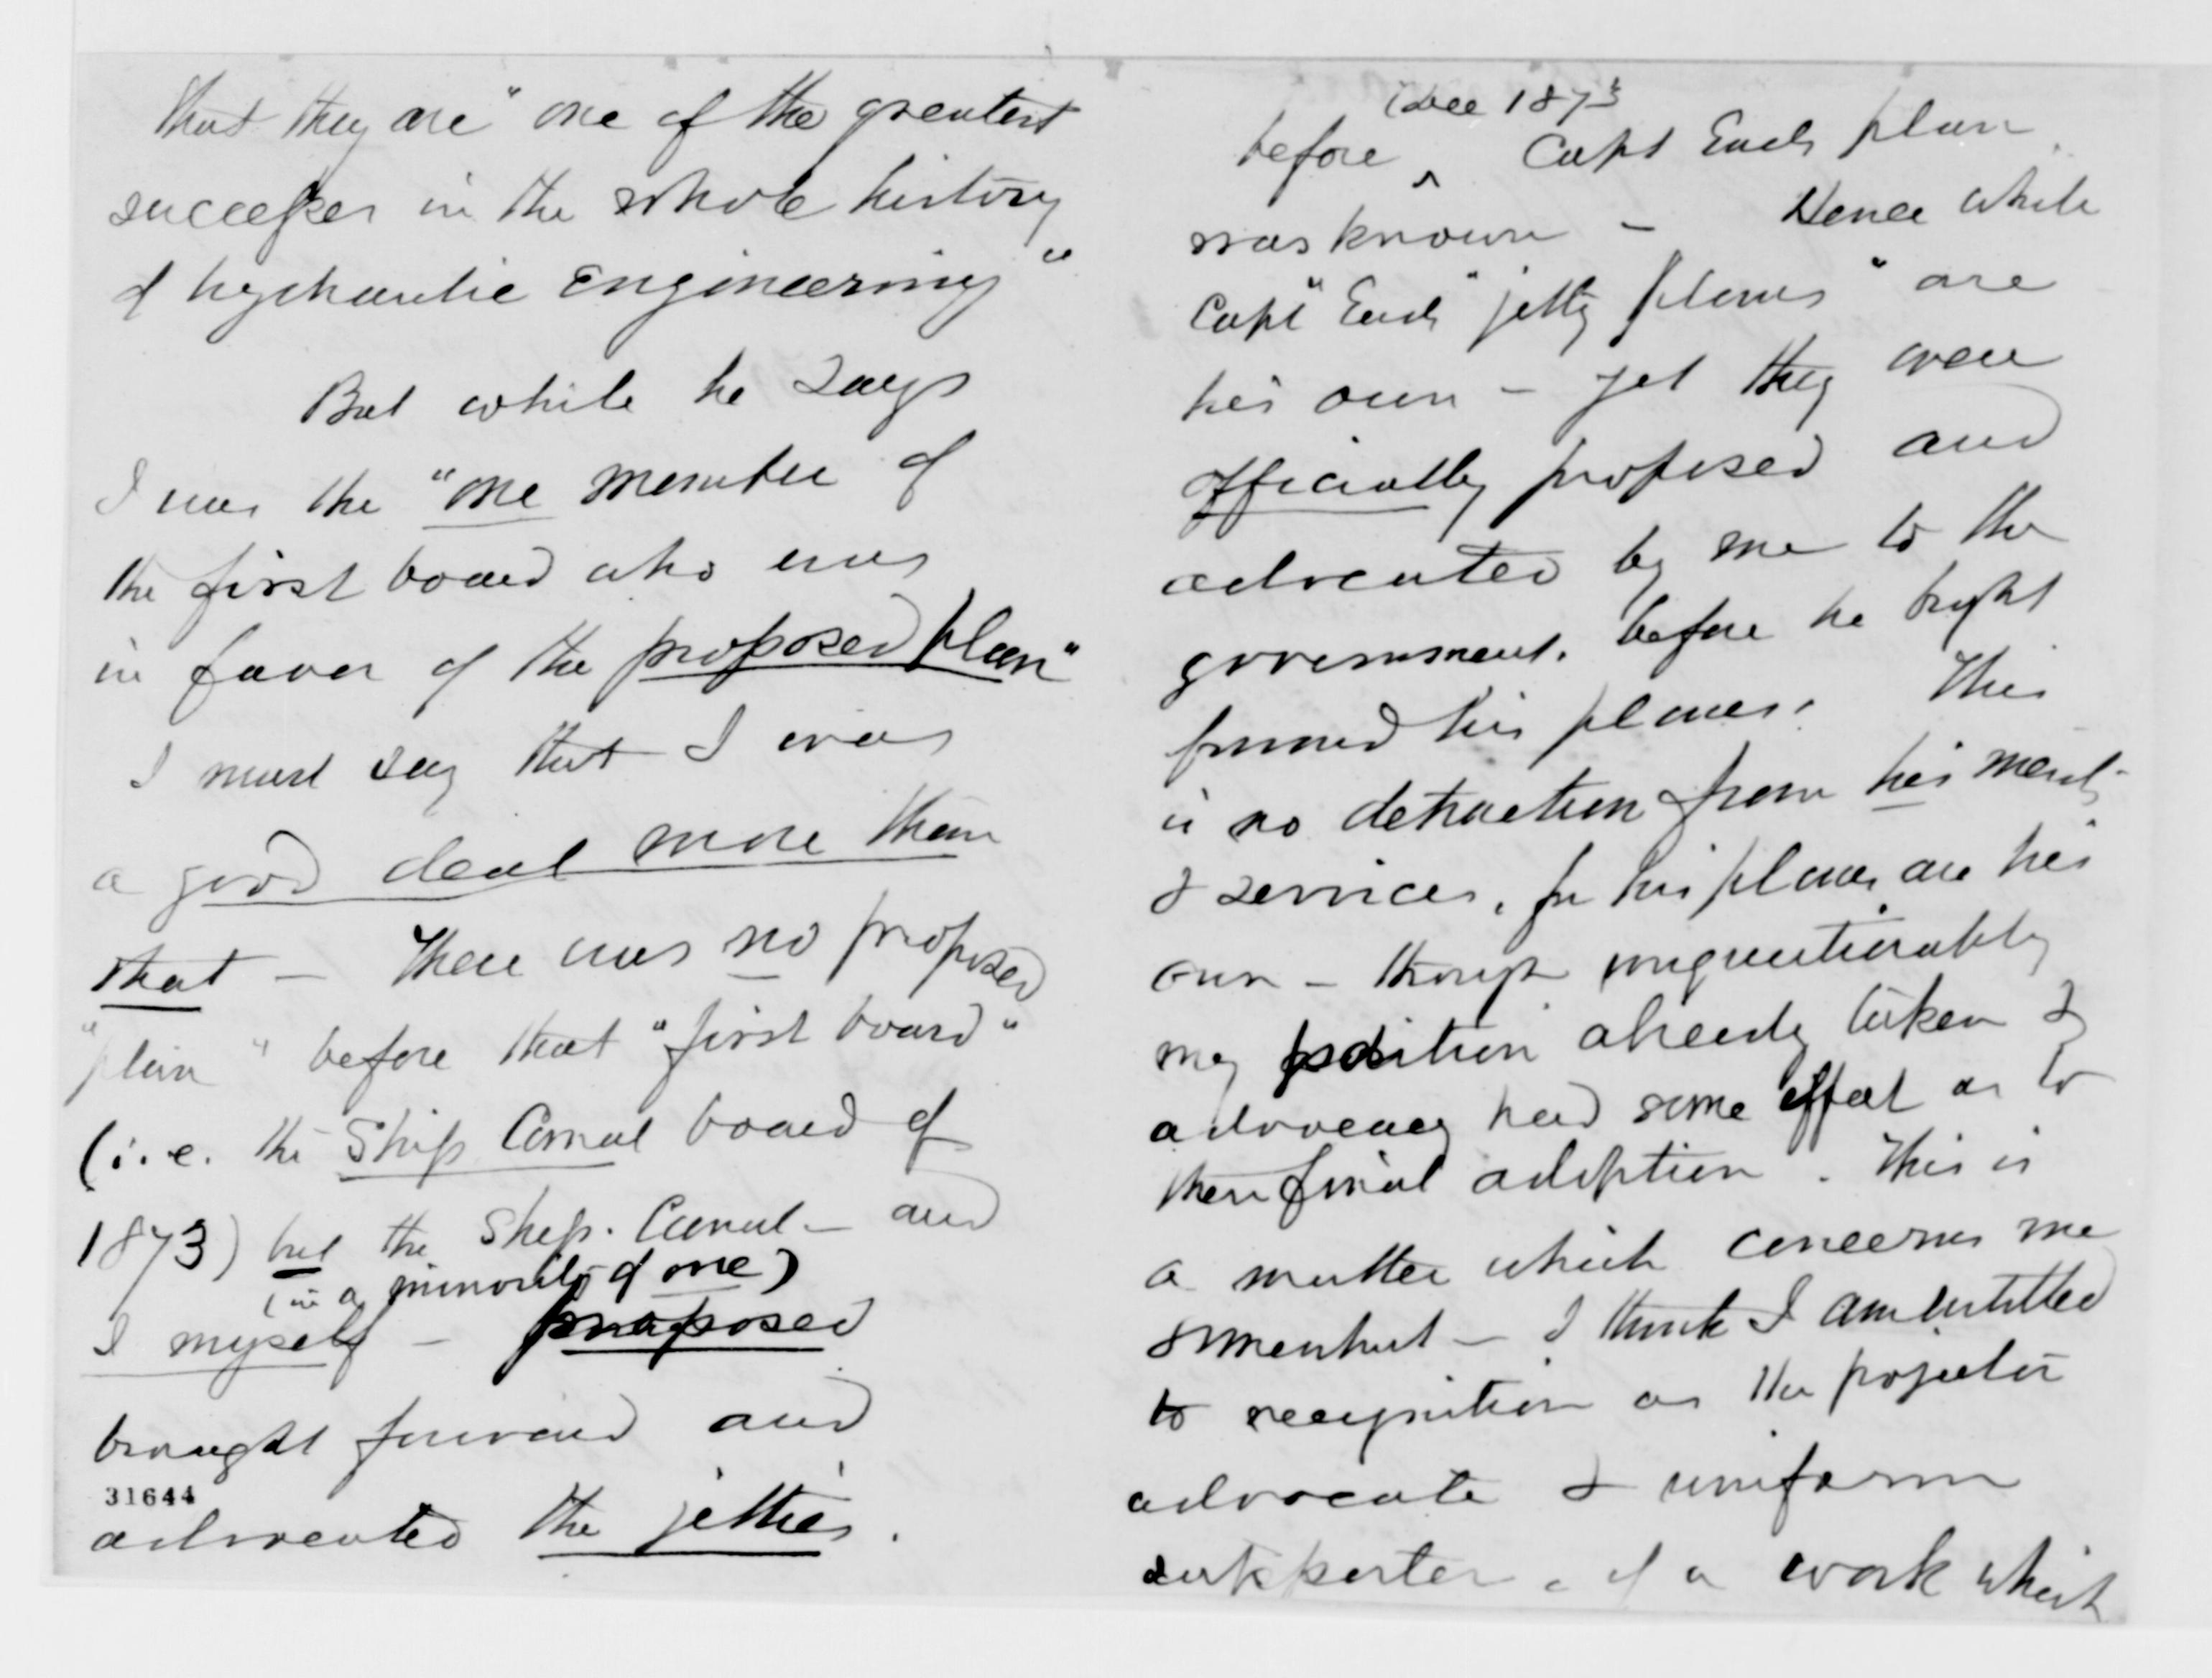 that they are "one of the greatest
successes in the whole history
of hydraulic Engineering"
But while he says
I was the "one member of
the first board who was
in favor of the proposed plan"
I must say that I was
a good deal more than
that – There was no proposed
"plan" before that "first board"
(i.e. the Ship Canal board of
1873) but the Ship. Canal – and
(in a minority of one)
I myself – proposed
brought forward and
31644
advocated the jetties.
(Dec 1873
before ^ Capt Eads plan
was known – Hence while
Capt "Eads" jetty plans" are
his own – yet they were
officially proposed and
advocated by me to the
government. before he
formed his plans. This
is no detraction from his merits
& services, for his plans are his
own – though unquestionably
my position already taken &
advocacy had some effect as to
their final adoption. This is
a matter which concerns me
somewhat – I think I am entitled
to recognition as the projector
advocate & uniform
supporter, of a work which